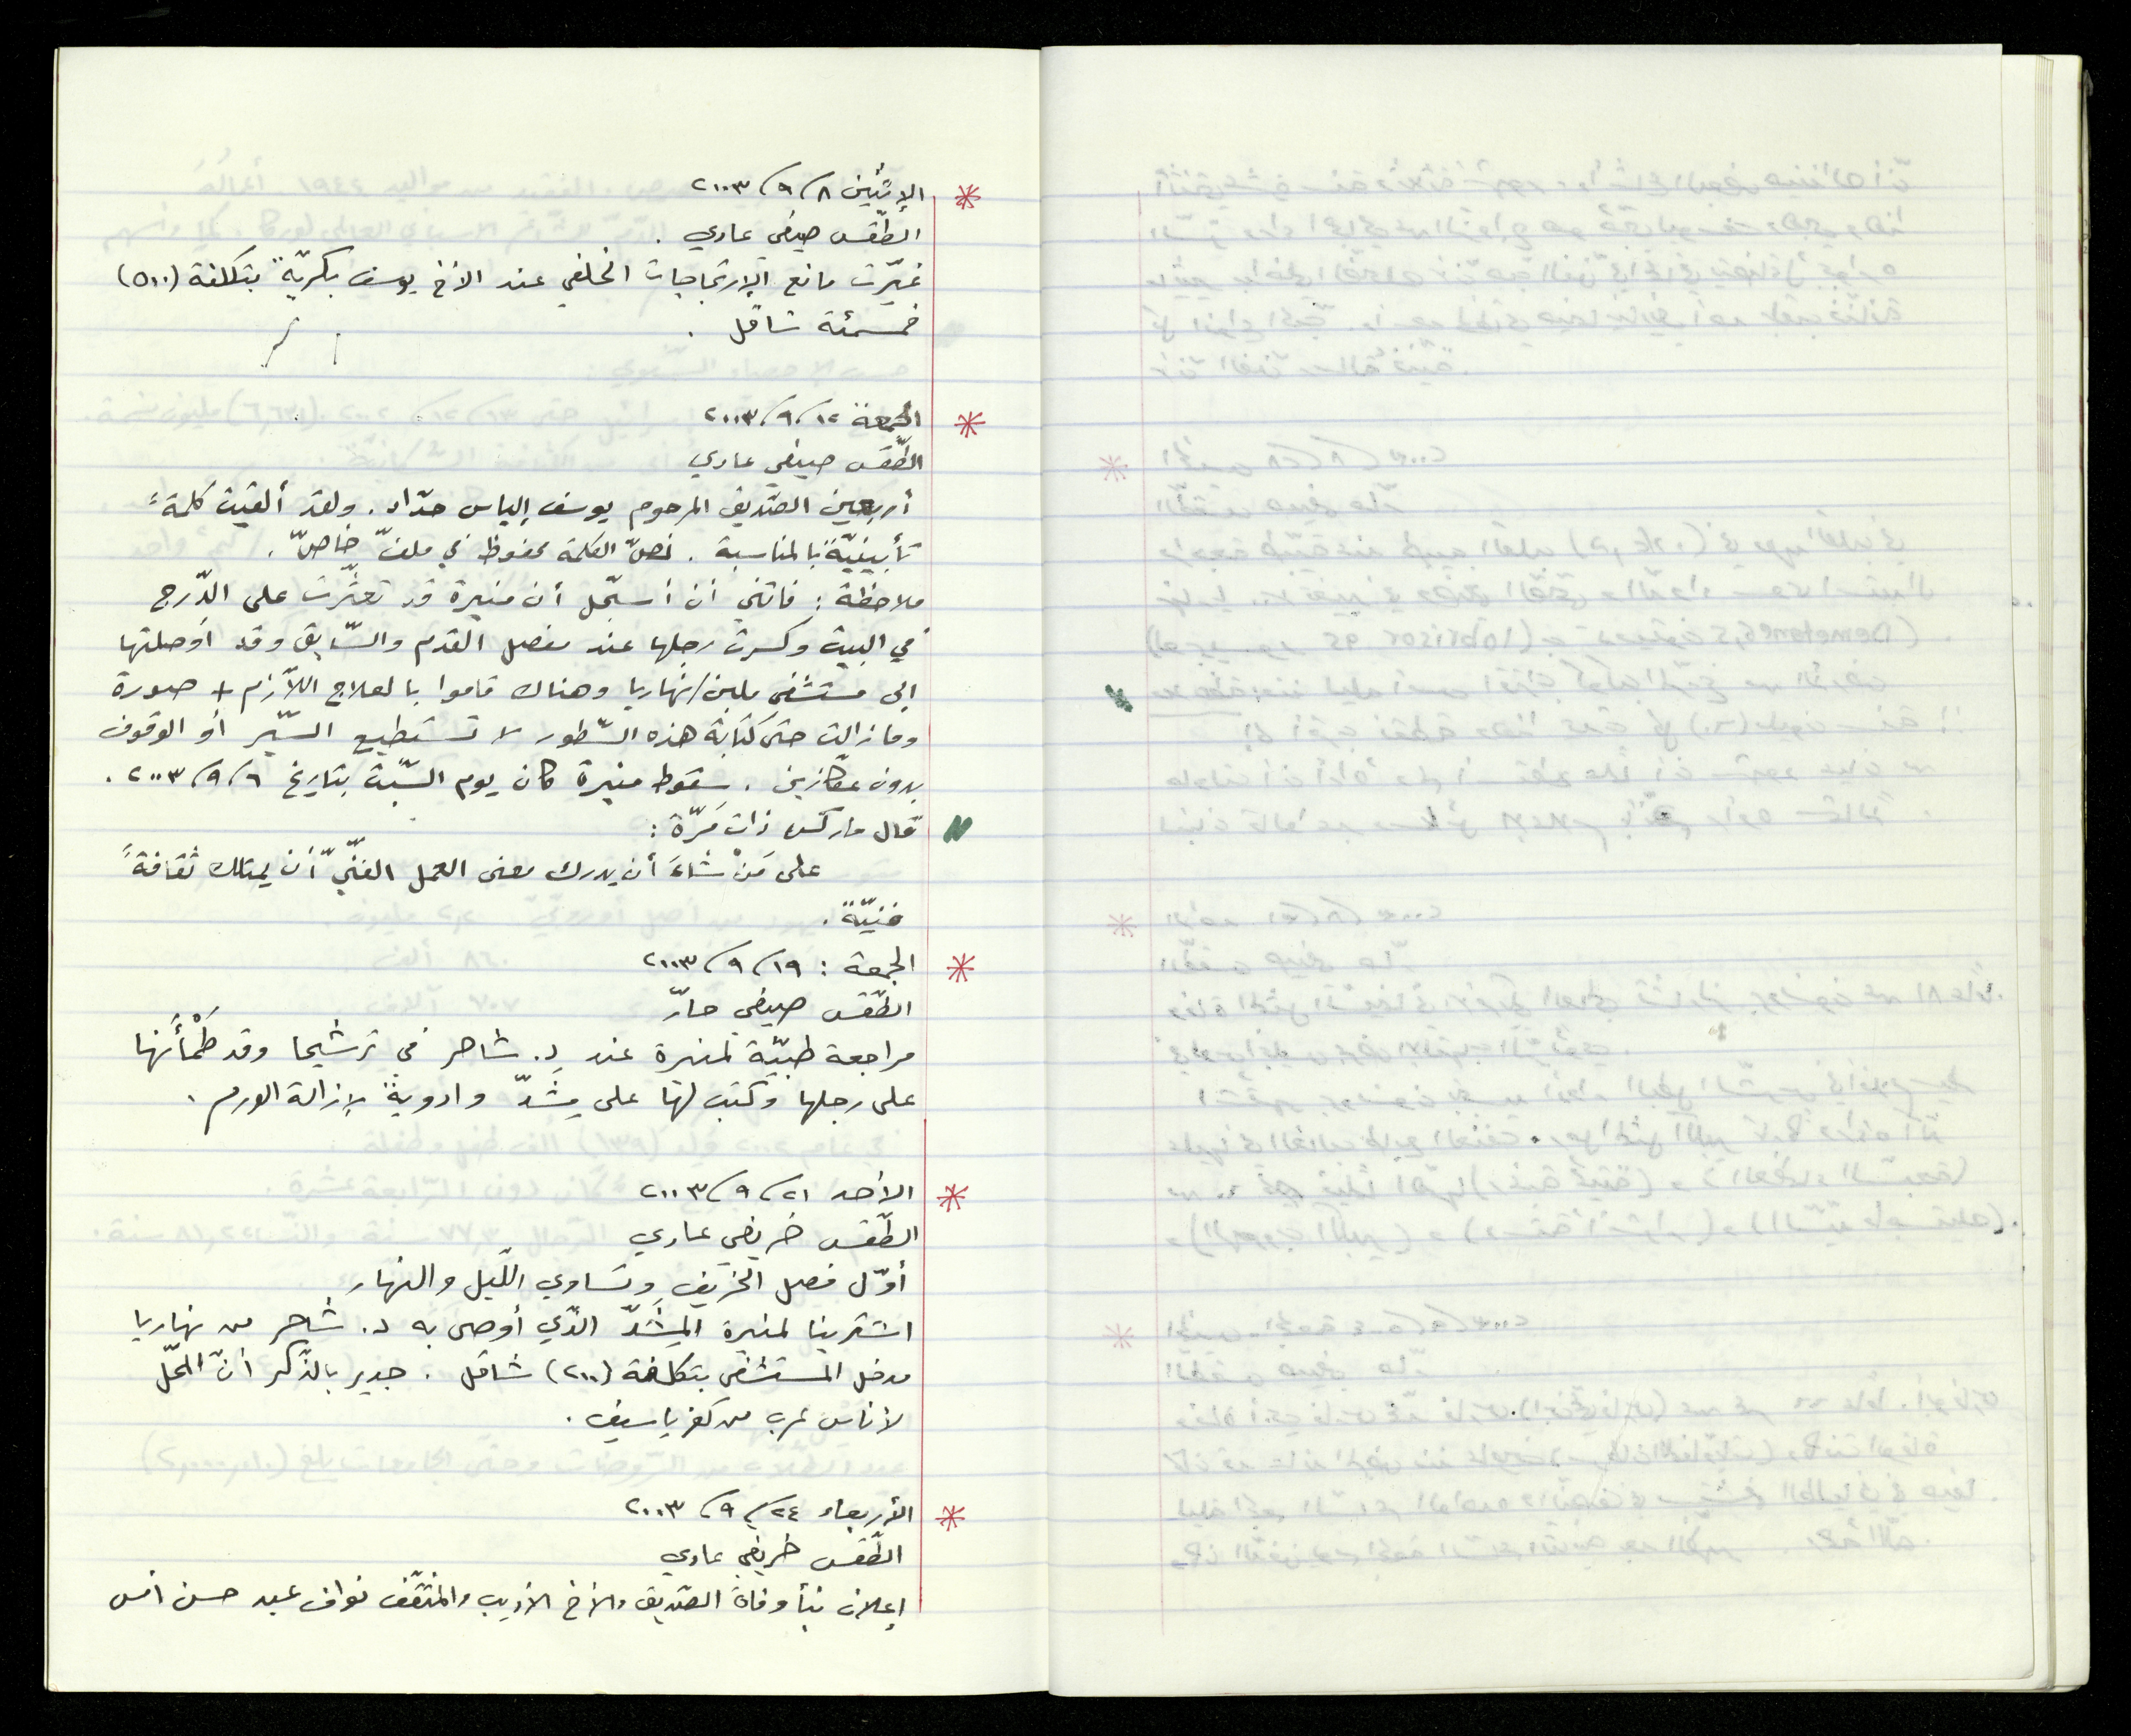 الإثنين ٨/٩/٢٠٠٣
الطّقس صيفي عادي .
غيّرت مانع الإرتجاجات الخلفي عند الأخ يوسف بكريّة بتكلفة (٥٠٠)
خمسمئة شاقل .
الجمعة ١٢/٩/٢٠٠٣
الطّقس صيفي عادي
أربعين الصّديق المرحوم يوسف إلياس حدّاد . ولقد ألقيت كلمةً
تأبينيّةً بالمناسبة . نصّ الكلمة محفوظ في ملفّ خاصّ .
ملاحظة : فاتني ان أسجّل أن منيرة قد تعثّرت على الدّرج
في البيت وكسرت رجلها عند مفصل القدم والسّاق وقد أوصلتها
الى مستشفى نهاريا وهناك قاموا بالعلاج اللاّزم + صورة
وما زالت حتى كتابة هذه السّطور لا تستطيع السّير أو الوقوف
بدون عكّازين . سقوط منيرة كان يوم السّبت بتاريخ ٦/٩/٢٠٠٣ .
قال ماركس ذات مَرّة :
على مَنْ شاءَ أن يدرك معنى العمل الفنّيّ أن يمتلك ثقافةً
فنيّةً .
الجمعة : ١٩/٩/٢٠٠٣
الطّقس صيفي حارّ
مراجعة طبيّة لمنيرة عند د. شاحر في ترشيحا وقد طَمْأَنها
على رجلها وكتب لها على مِشَدّ وادويةً لإزالة الورم .
الأحد ٢١/٩/٢٠٠٣
الطّقس خريفي عادي
أوّل فصل الخريف وتساوي اللّيل والنهار
اشترينا لمنيرة المِشَدّ الّذي أوصى به د. شاحر من نهاريا
مدخل المستشفى بتكلفة (٢٠٠) شاقل . جدير بالذّكر أنّ المحلّ
لأناس عرب من كفر ياسيف .
الأربعاء ٢٤/٩/٢٠٠٣
الطّقس خريفي عادي
إعلان نبأ وفاة الصّديق والأخ الأديب والمثقّف نواف عبد حسن امس